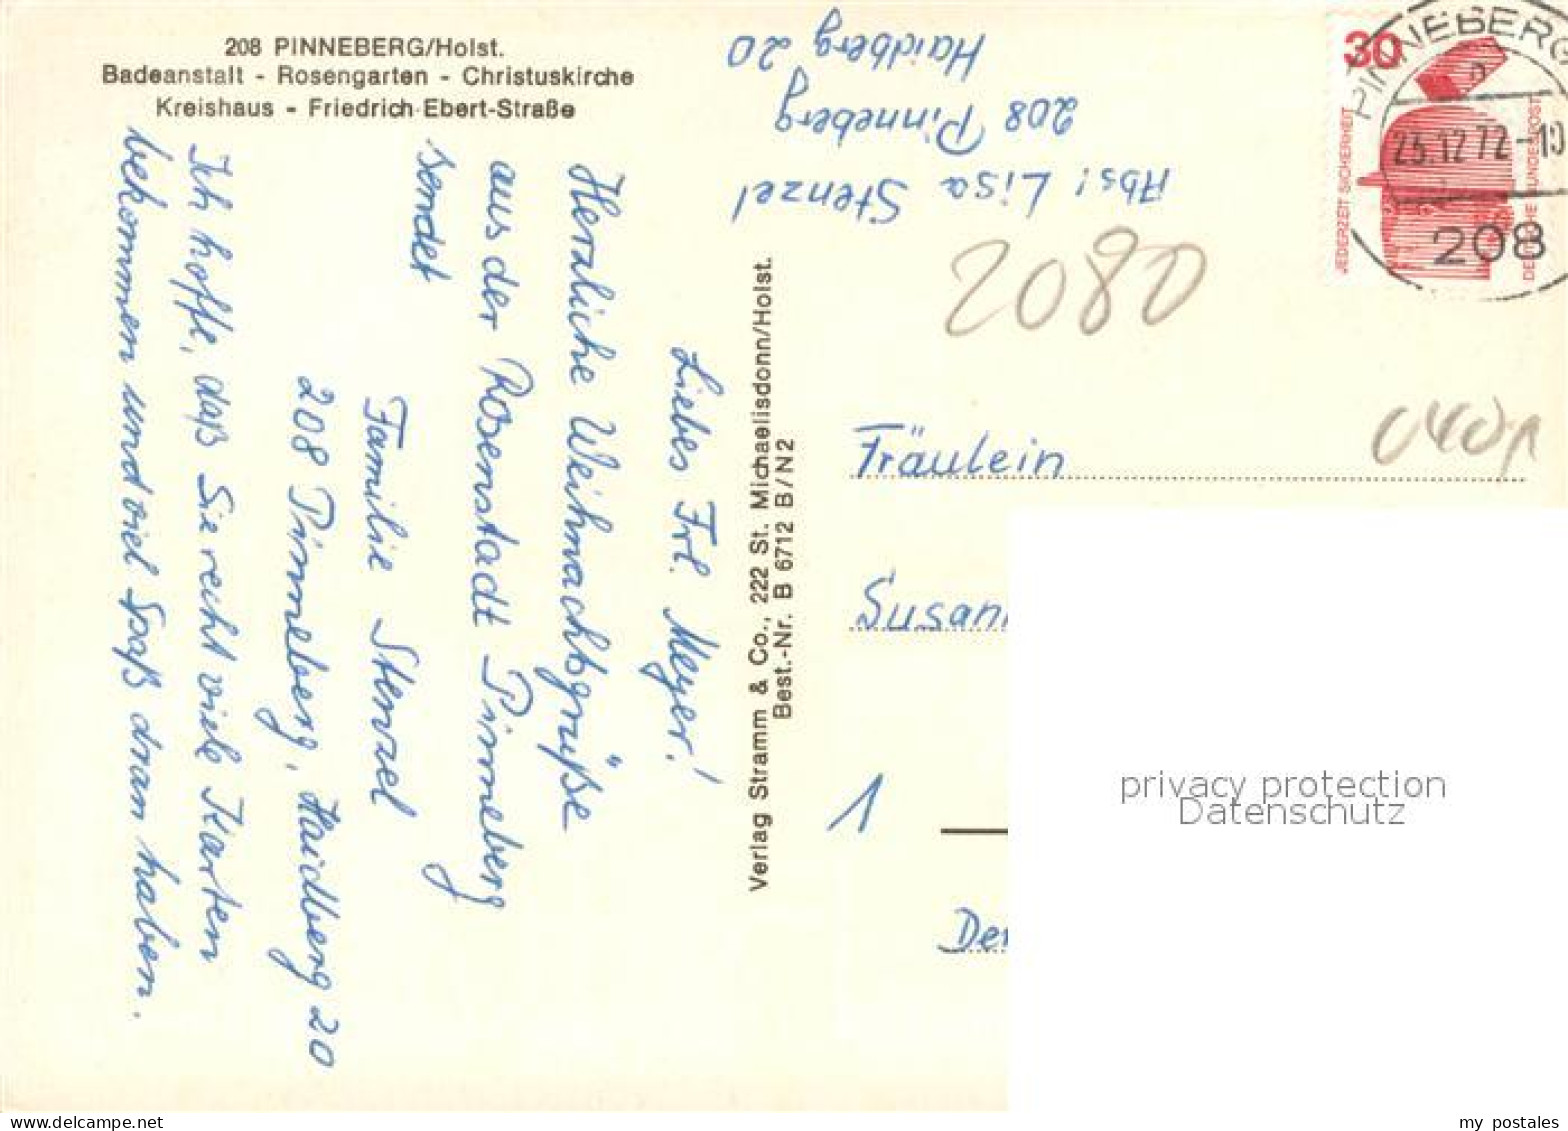 208 PINNEBERG/Holst.
Badeanstalt - Rosengarten - Christuskirche
Kreishaus - Friedrich-Ebert-Straße
Liebes Frl. Meyer!
Herzliche Weihnachtsgrüße
aus der Rosenstadt Pinneberg
sendet
Familie Stenzel
208 Pinneberg, Haidberg 20
Ich hoffe, daß Sie recht viele Karten
bekommen und viel Spaß dran haben.
Verlag Stramm & Co., 222 St. Michaelisdonn/Holst.
Best.-Nr. B 6712 B/N2
Abs: Lisa Stenzel
208 Pinneberg
Haidberg 20
30
JEDERZEIT SICHERHEIT
DEUTSCHE BUNDESPOST
PINNEBERG
23.12.72-10
208
2080
Fräulein
Susann
1
Der
privacy protection
Datenschutz
my postales